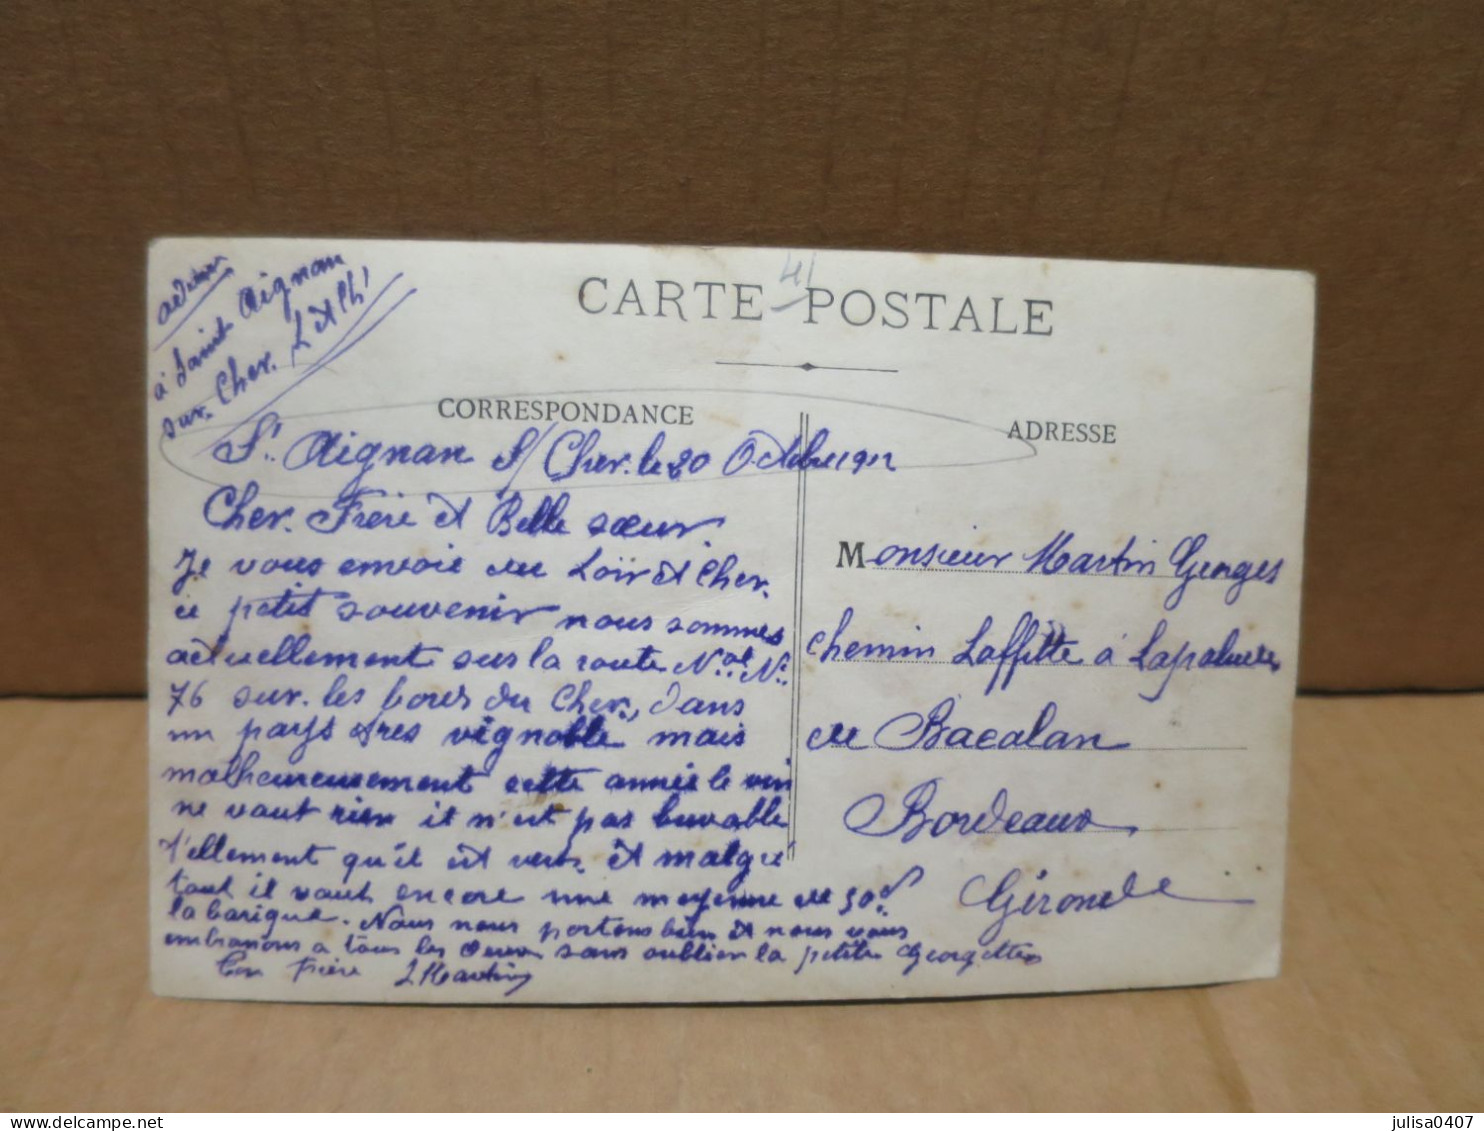 41
CARTE POSTALE
à Saint Aignan
sur. Cher. L et Ch
CORRESPONDANCE
ADRESSE
St. Aignan S/ Cher. le 20 Octobre 1912
Cher. Frère et Belle sœur.
Je vous envoie du Loir et Cher.
ce petit souvenir nous sommes
actuellement sur la route N.ale N°
76 sur. les bords du Cher, dans
un pays tres vignoble mais
malheureusement cette année le vin
ne vaut rien il n'est pas buvable
t'ellement qu'il est vers et malgré
tout il vaut encore une moyenne de 50f
la barique. Nous nous portons bien et nous vous
embrassons a tous les deux sans oublier la petite Georgette
Ton Frère J Martin
Monsieur Martin Georges
chemin Laffitte à
de Bacalan
Bordeaux
Gironde
julisa0407